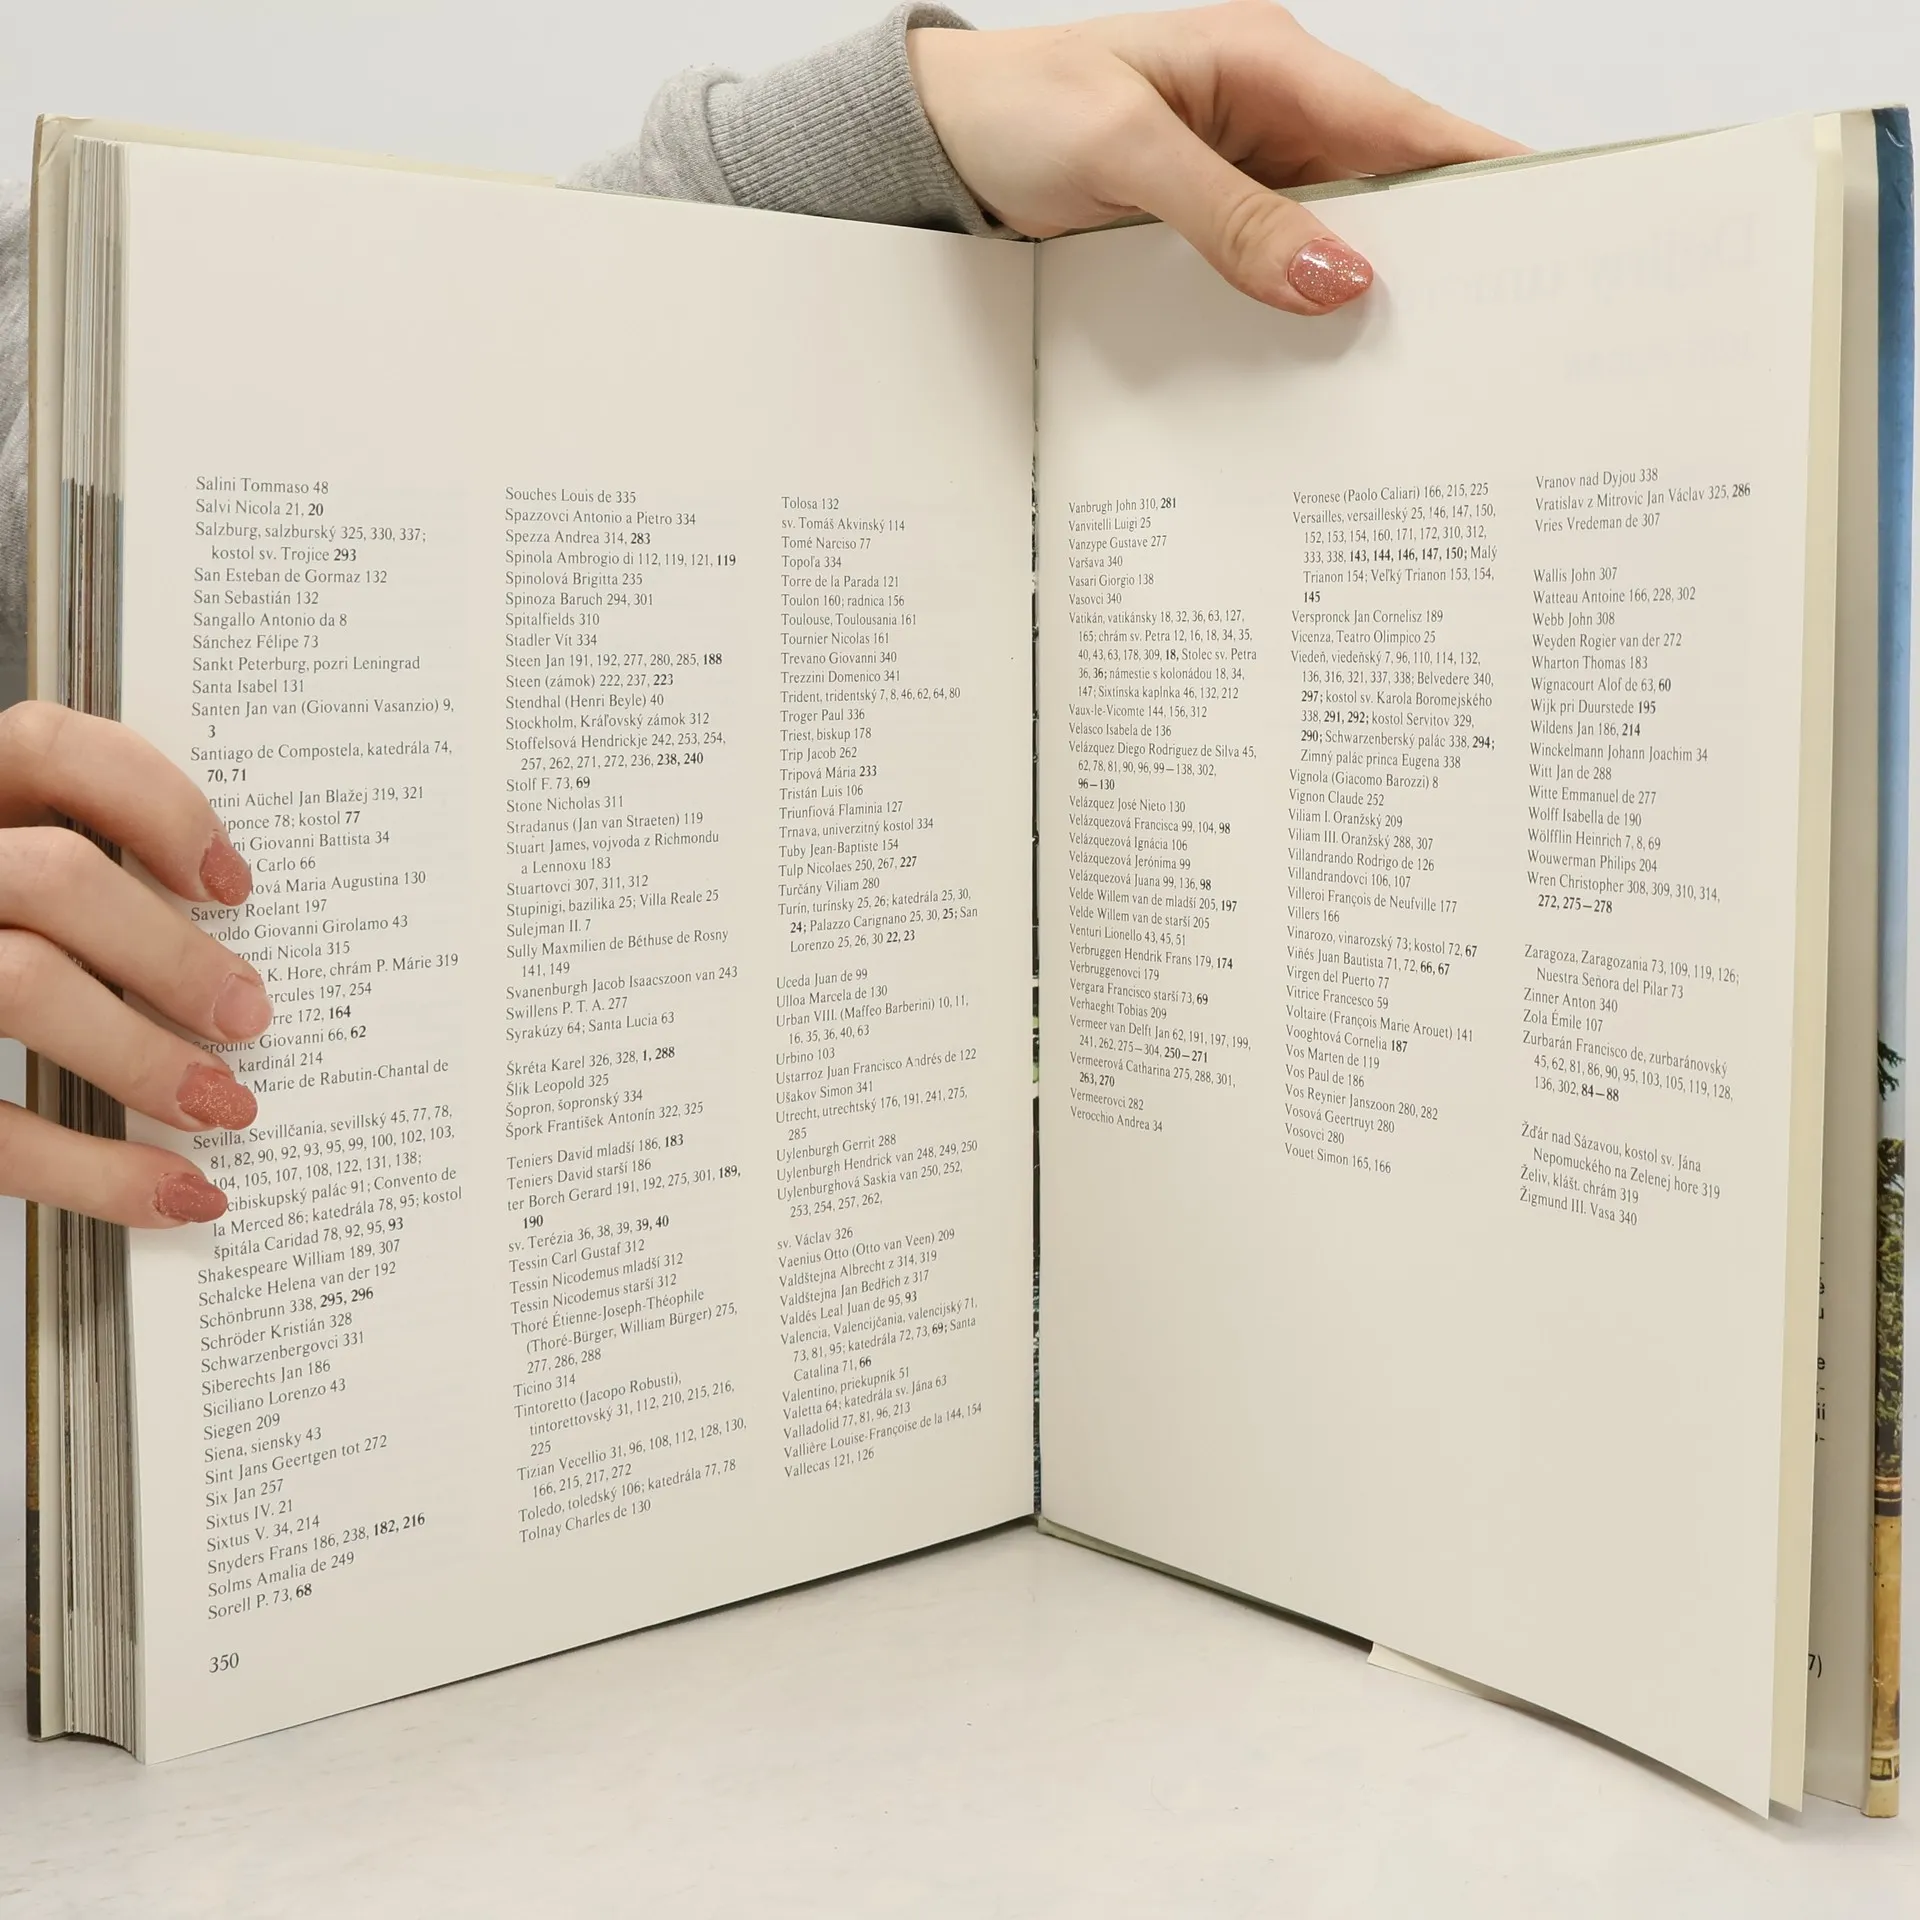 Salini Tommaso 48
Salvi Nicola 21, 20
Salzburg, salzburský 325, 330, 337;
kostol sv. Trojice 293
San Esteban de Gormaz 132
San Sebastián 132
Sangallo Antonio da 8
Sánchez Félipe 73
Sankt Peterburg, pozri Leningrad
Santa Isabel 131
Santen Jan van (Giovanni Vasanzio) 9,
3
Santiago de Compostela, katedrála 74,
70, 71
Aüchel Jan Blažej 319, 321
78; kostol 77
Giovanni Battista 34
Carlo 66
Maria Augustina 130
Savery Roelant 197
Giovanni Girolamo 43
Nicola 315
K. Hore, chrám P. Márie 319
197, 254
172, 164
Giovanni 66, 62
kardinál 214
Marie de Rabutin-Chantal de
Sevilla, Sevillčania, sevillský 45, 77, 78,
81, 82, 90, 92, 93, 95, 99, 100, 102, 103,
104, 105, 107, 108, 122, 131, 138;
palác 91; Convento de
la Merced 86; katedrála 78, 95; kostol
špitála Caridad 78, 92, 95, 93
Shakespeare William 189, 307
Schalcke Helena van der 192
Schönbrunn 338, 295, 296
Schröder Kristián 328
Schwarzenbergovci 331
Siberechts Jan 186
Siciliano Lorenzo 43
Siegen 209
Siena, siensky 43
Sint Jans Geertgen tot 272
Six Jan 257
Sixtus IV. 21
Sixtus V. 34, 214
Snyders Frans 186, 238, 182, 216
Solms Amalia de 249
Sorell P. 73, 68
350
Souches Louis de 335
Spazzovci Antonio a Pietro 334
Spezza Andrea 314, 283
Spinola Ambrogio di 112, 119, 121, 119
Spinolová Brigitta 235
Spinoza Baruch 294, 301
Spitalfields 310
Stadler Vít 334
Steen Jan 191, 192, 277, 280, 285, 188
Steen (zámok) 222, 237, 223
Stendhal (Henri Beyle) 40
Stockholm, Kráľovský zámok 312
Stoffelsová Hendrickje 242, 253, 254,
257, 262, 271, 272, 236, 238, 240
Stolf F. 73, 69
Stone Nicholas 311
Stradanus (Jan van Straeten) 119
Stuart James, vojvoda z Richmondu
a Lennoxu 183
Stuartovci 307, 311, 312
Stupinigi, bazilika 25; Villa Reale 25
Sulejman II. 7
Sully Maxmilien de Béthuse de Rosny
141, 149
Svanenburgh Jacob Isaacszoon van 243
Swillens P. T. A. 277
Syrakúzy 64; Santa Lucia 63
Škréta Karel 326, 328, 1, 288
Šlik Leopold 325
Šopron, šopronský 334
Špork František Antonín 322, 325
Teniers David mladší 186, 183
Teniers David starší 186
ter Borch Gerard 191, 192, 275, 301, 189,
190
sv. Terézia 36, 38, 39, 39, 40
Tessin Carl Gustaf 312
Tessin Nicodemus mladší 312
Tessin Nicodemus starší 312
Thoré Étienne-Joseph-Théophile
(Thoré-Bürger, William Bürger) 275,
277, 286, 288
Ticino 314
Tintoretto (Jacopo Robusti),
tintorettovský 31, 112, 210, 215, 216,
225
Tizian Vecellio 31, 96, 108, 112, 128, 130,
166, 215, 217, 272
Toledo, toledský 106; katedrála 77, 78
Tolnay Charles de 130
Tolosa 132
sv. Tomáš Akvinský 114
Tomé Narciso 77
Topoľa 334
Torre de la Parada 121
Toulon 160; radnica 156
Toulouse, Toulousania 161
Tournier Nicolas 161
Trevano Giovanni 340
Trezzini Domenico 341
Trident, tridentský 7, 8, 46, 62, 64, 80
Troger Paul 336
Triest, biskup 178
Trip Jacob 262
Tripová Mária 233
Tristán Luis 106
Triunfiová Flaminia 127
Trnava, univerzitný kostol 334
Tuby Jean-Baptiste 154
Tulp Nicolaes 250, 267, 227
Turčány Viliam 280
Turín, turínsky 25, 26; katedrála 25, 30,
24; Palazzo Carignano 25, 30, 25; San
Lorenzo 25, 26, 30 22, 23
Uceda Juan de 99
Ulloa Marcela de 130
Urban VIII. (Maffeo Barberini) 10, 11,
16, 35, 36, 40, 63
Urbino 103
Ustarroz Juan Francisco Andrés de 122
Ušakov Simon 341
Utrecht, utrechtský 176, 191, 241, 275,
285
Uylenburgh Gerrit 288
Uylenburgh Hendrick van 248, 249, 250
Uylenburghová Saskia van 250, 252,
253, 254, 257, 262,
sv. Václav 326
Vaenius Otto (Otto van Veen) 209
Valdštejna Albrecht z 314, 319
Valdštejna Jan Bedřich z 317
Valdés Leal Juan de 95, 93
Valencia, Valencijčania, valencijský 71,
73, 81, 95; katedrála 72, 73, 69; Santa
Catalina 71, 66
Valentino, priekupník 51
Valetta 64; katedrála sv. Jána 63
Valladolid 77, 81, 96, 213
Vallière Louise-Françoise de la 144, 154
Vallecas 121, 126
Vanbrugh John 310, 281
Vanvitelli Luigi 25
Vanzype Gustave 277
Varšava 340
Vasari Giorgio 138
Vasovci 340
Vatikán, vatikánsky 18, 32, 36, 63, 127,
165; chrám sv. Petra 12, 16, 18, 34, 35,
40, 43, 63, 178, 309, 18, Stolec sv. Petra
36, 36; námestie s kolonádou 18, 34,
147; Sixtínska kaplnka 46, 132, 212
Vaux-le-Vicomte 144, 156, 312
Velasco Isabela de 136
Velázquez Diego Rodriguez de Silva 45,
62, 78, 81, 90, 96, 99—138, 302,
96—130
Velázquez José Nieto 130
Velázquezová Francisca 99, 104, 98
Velázquezová Ignácia 106
Velázquezová Jerónima 99
Velázquezová Juana 99, 136, 98
Velde Willem van de mladší 205, 197
Velde Willem van de starší 205
Venturi Lionello 43, 45, 51
Verbruggen Hendrik Frans 179, 174
Verbruggenovci 179
Vergara Francisco starší 73, 69
Verhaeght Tobias 209
Vermeer van Delft Jan 62, 191, 197, 199,
241, 262, 275—304, 250—271
Vermeerová Catharina 275, 288, 301,
263, 270
Vermeerovci 282
Verocchio Andrea 34
Veronese (Paolo Caliari) 166, 215, 225
Versailles, versailleský 25, 146, 147, 150,
152, 153, 154, 160, 171, 172, 310, 312,
333, 338, 143, 144, 146, 147, 150; Malý
Trianon 154; Veľký Trianon 153, 154,
145
Verspronck Jan Cornelisz 189
Vicenza, Teatro Olimpico 25
Viedeň, viedeňský 7, 96, 110, 114, 132,
136, 316, 321, 337, 338; Belvedere 340,
297; kostol sv. Karola Boromejského
338, 291, 292; kostol Servitov 329,
290; Schwarzenberský palác 338, 294;
Zimný palác princa Eugena 338
Vignola (Giacomo Barozzi) 8
Vignon Claude 252
Viliam I. Oranžský 209
Viliam III. Oranžský 288, 307
Villandrando Rodrigo de 126
Villandrandovci 106, 107
Villeroi François de Neufville 177
Villers 166
Vinarozo, vinarozský 73; kostol 72, 67
Viñés Juan Bautista 71, 72, 66, 67
Virgen del Puerto 77
Vitrice Francesco 59
Voltaire (François Marie Arouet) 141
Vooghtová Cornelia 187
Vos Marten de 119
Vos Paul de 186
Vos Reynier Janszoon 280, 282
Vosová Geertruyt 280
Vosovci 280
Vouet Simon 165, 166
Vranov nad Dyjou 338
Vratislav z Mitrovic Jan Václav 325, 286
Vries Vredeman de 307
Wallis John 307
Watteau Antoine 166, 228, 302
Webb John 308
Weyden Rogier van der 272
Wharton Thomas 183
Wignacourt Alof de 63, 60
Wijk pri Duurstede 195
Wildens Jan 186, 214
Winckelmann Johann Joachim 34
Witt Jan de 288
Witte Emmanuel de 277
Wolff Isabella de 190
Wölfflin Heinrich 7, 8, 69
Wouwerman Philips 204
Wren Christopher 308, 309, 310, 314,
272, 275—278
Zaragoza, Zaragozania 73, 109, 119, 126;
Nuestra Señora del Pilar 73
Zinner Anton 340
Zola Émile 107
Zurbarán Francisco de, zurbaránovský
45, 62, 81, 86, 90, 95, 103, 105, 119, 128,
136, 302, 84—88
Žďár nad Sázavou, kostol sv. Jána
Nepomuckého na Zelenej hore 319
Želiv, klášt. chrám 319
Žigmund III. Vasa 340
7)